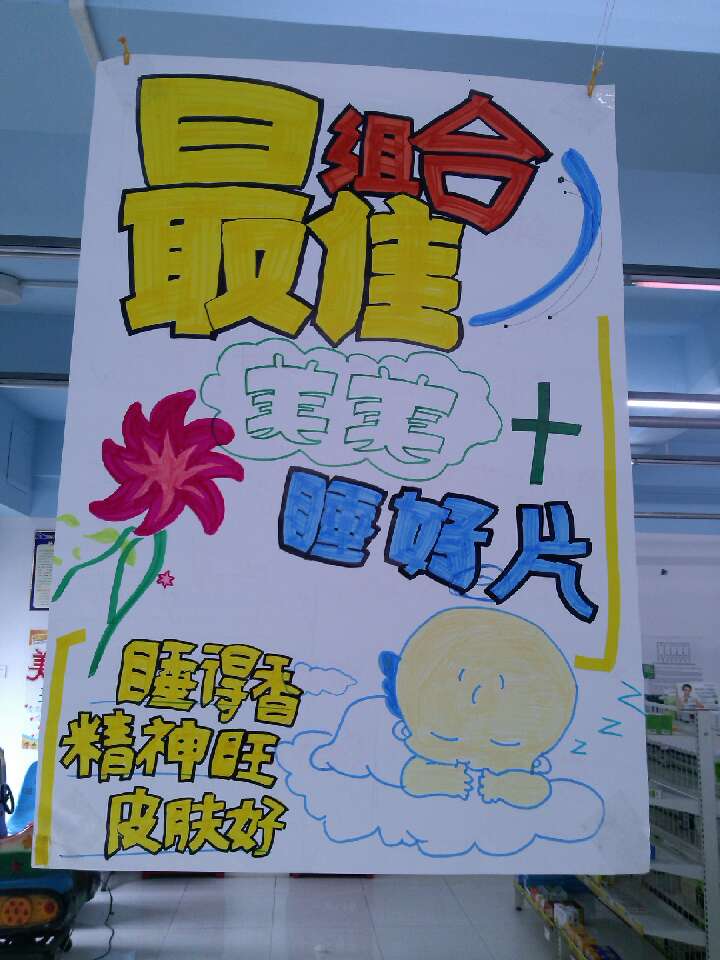 最佳组合
芙芙 +
睡好片
睡得香
精神旺
皮肤好
z z z
美